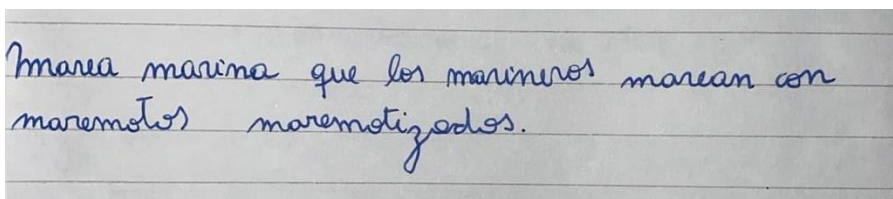 Marea marina que los marineros marean con
maremotos maremotizados.